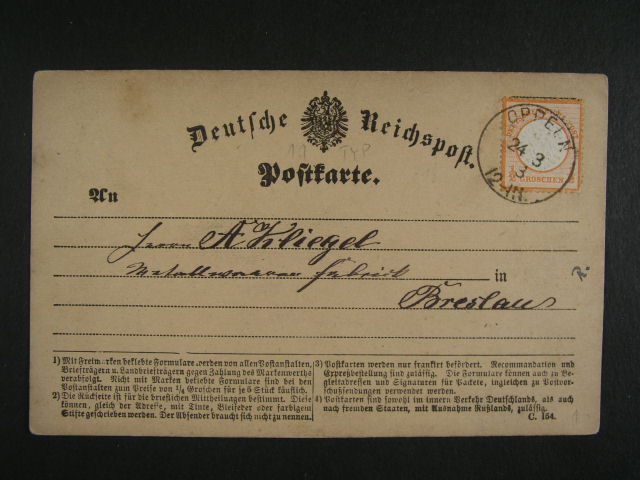 Deutsche Reichspost.
11 TYP
Postkarte.
OPPELN
24 3
3
12-1N.
½
GROSCHEN
An
Herrn A Kliegel
Metallwaaren Fabrik in
Breslau
1) Mit Freimarken beklebte Formulare werden von allen Postanstalten,
Briefträgern u. Landbriefträgern gegen Zahlung des Markenwerths
verabfolgt. Nicht mit Marken beklebte Formulare sind bei den
Postanstalten zum Preise von ¼ Groschen für je 5 Stück käuflich.
2) Die Rückseite ist für die brieflichen Mittheilungen bestimmt. Diese
können, gleich der Adresse, mit Tinte, Bleifeder oder farbigem
Stifte geschrieben werden. Der Absender braucht sich nicht zu nennen.
3) Postkarten werden nur frankirt befördert. Recommandation und
Expreßbestellung sind zulässig. Die Formulare können auch zu Be-
gleitadressen und Signaturen für Packete, ingleichen zu Postvor-
schußsendungen verwendet werden.
4) Postkarten sind sowohl im innern Verkehr Deutschlands, als auch
nach fremden Staaten, mit Ausnahme Rußlands, zulässig.
C. 154.